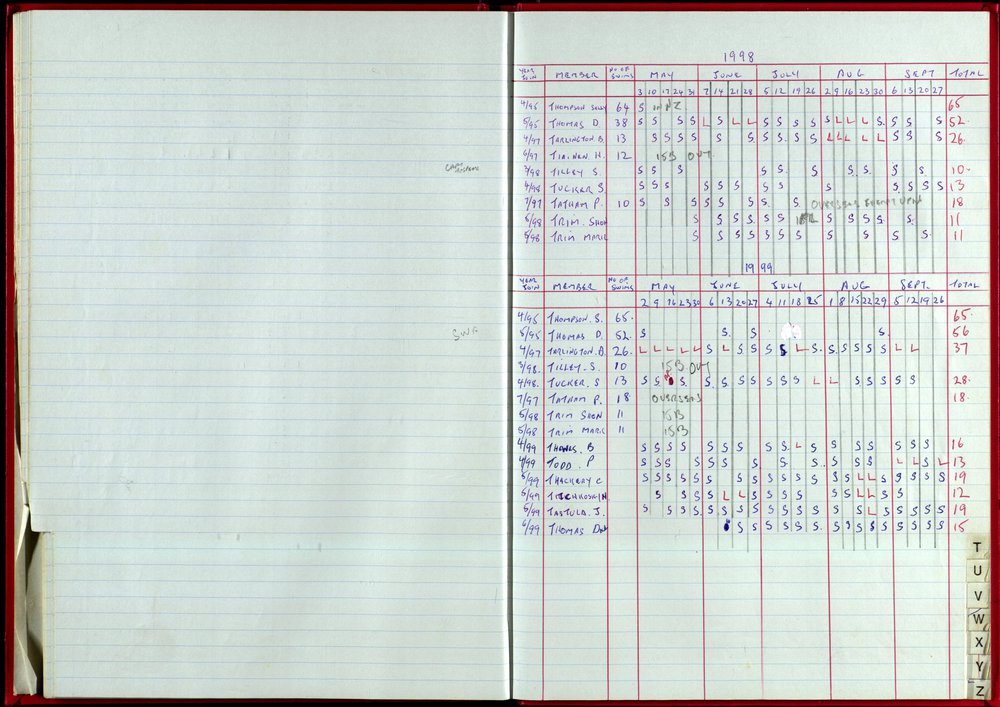 1998
YEAR JOIN MEMBER NO OF SWIMS MAY JUNE JULY AUG SEPT TOTAL
3 10 17 24 31 7 14 21 28 5 12 19 26 2 9 16 23 30 6 13 20 27
4/95 THOMPSON 64 S IN NZ 65
5/95 THOMAS D. 38 S S S S L S L L S S S S S L L L S S S S 52
4/97 TARLINGTON B. 13 S S S S S S S S S S L L L L L S S S 26
6/97 H. 12 15B OUT
3/98 TILLEY S. S S S S S S S S S 10
4/98 TUCKER S. S S S S S S S S S S S S S 13
7/97 TATHAM P. 10 S S S S S S S S OVERSEAS 18
5/98 TRIM SHON S S S S S S S S S S S 11
5/98 TRIM MARK S S S S S S S S S S S 11
1999
YEAR JOIN MEMBER NO OF SWIMS MAY JUNE JULY AUG SEPT. TOTAL
2 9 16 23 30 6 13 20 27 4 11 18 25 1 8 15 22 29 5 12 19 26
4/95 THOMPSON. S. 65 65
5/95 THOMAS D. 52 S S S S 56
4/97 TARLINGTON. B. 26 L L L L L S L S S S S L S S S S S S L L 37
3/98 TILLEY. S. 10 15B OUT
4/98 TUCKER. S 13 S S S S S S S S S S L L S S S S S 28
7/97 TATHAM P. 18 OVERSEAS 18
5/98 TRIM SHON 11 15B
5/98 TRIM MARK 11 15B
4/99 B S S S S S S S S S S L S S S S S S S 16
4/99 TODD. P S S S S S S S S S S S S L L S L 13
5/99 THACKERY C S S S S S S S S S S S S S L L S S S S S 19
5/99 S S S S S L L S S S S S S L L S S 12
5/99 J. S S S S S S S S S S S S S L S S S S S 19
6/99 THOMAS S S S S S S S S S S S S S S S 15
T
U
V
W
X
Y
Z